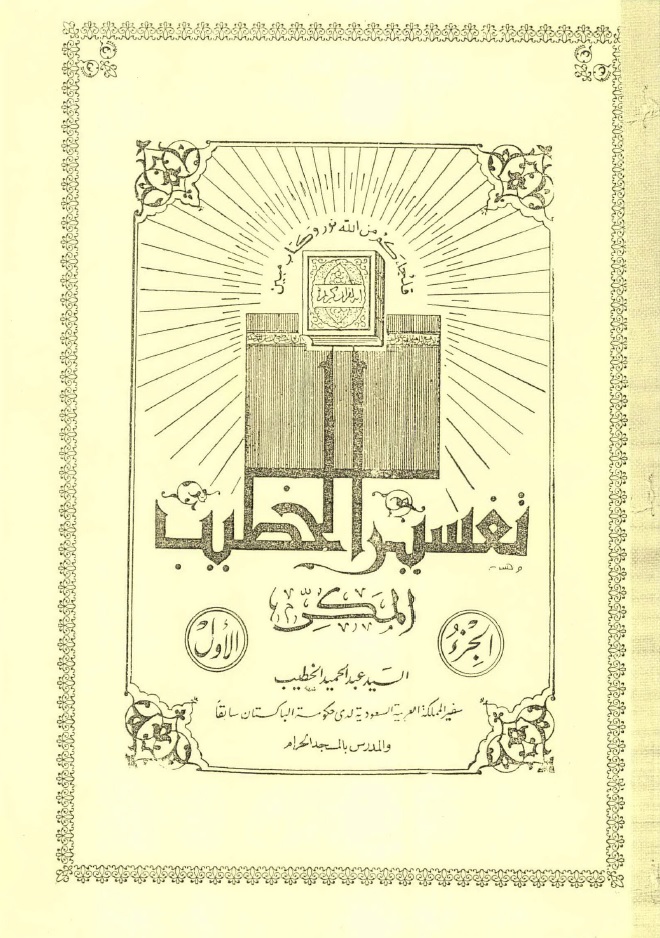 قد جاءكم من الله نور وكتاب مبين
القرآن الكريم
تفسير الخطيب
المكي
الجزء
الأول
السيد عبد الحميد الخطيب
سفير المملكة العربية السعودية لدى حكومة الباكستان سابقاً
والمدرس بالمسجد الحرام